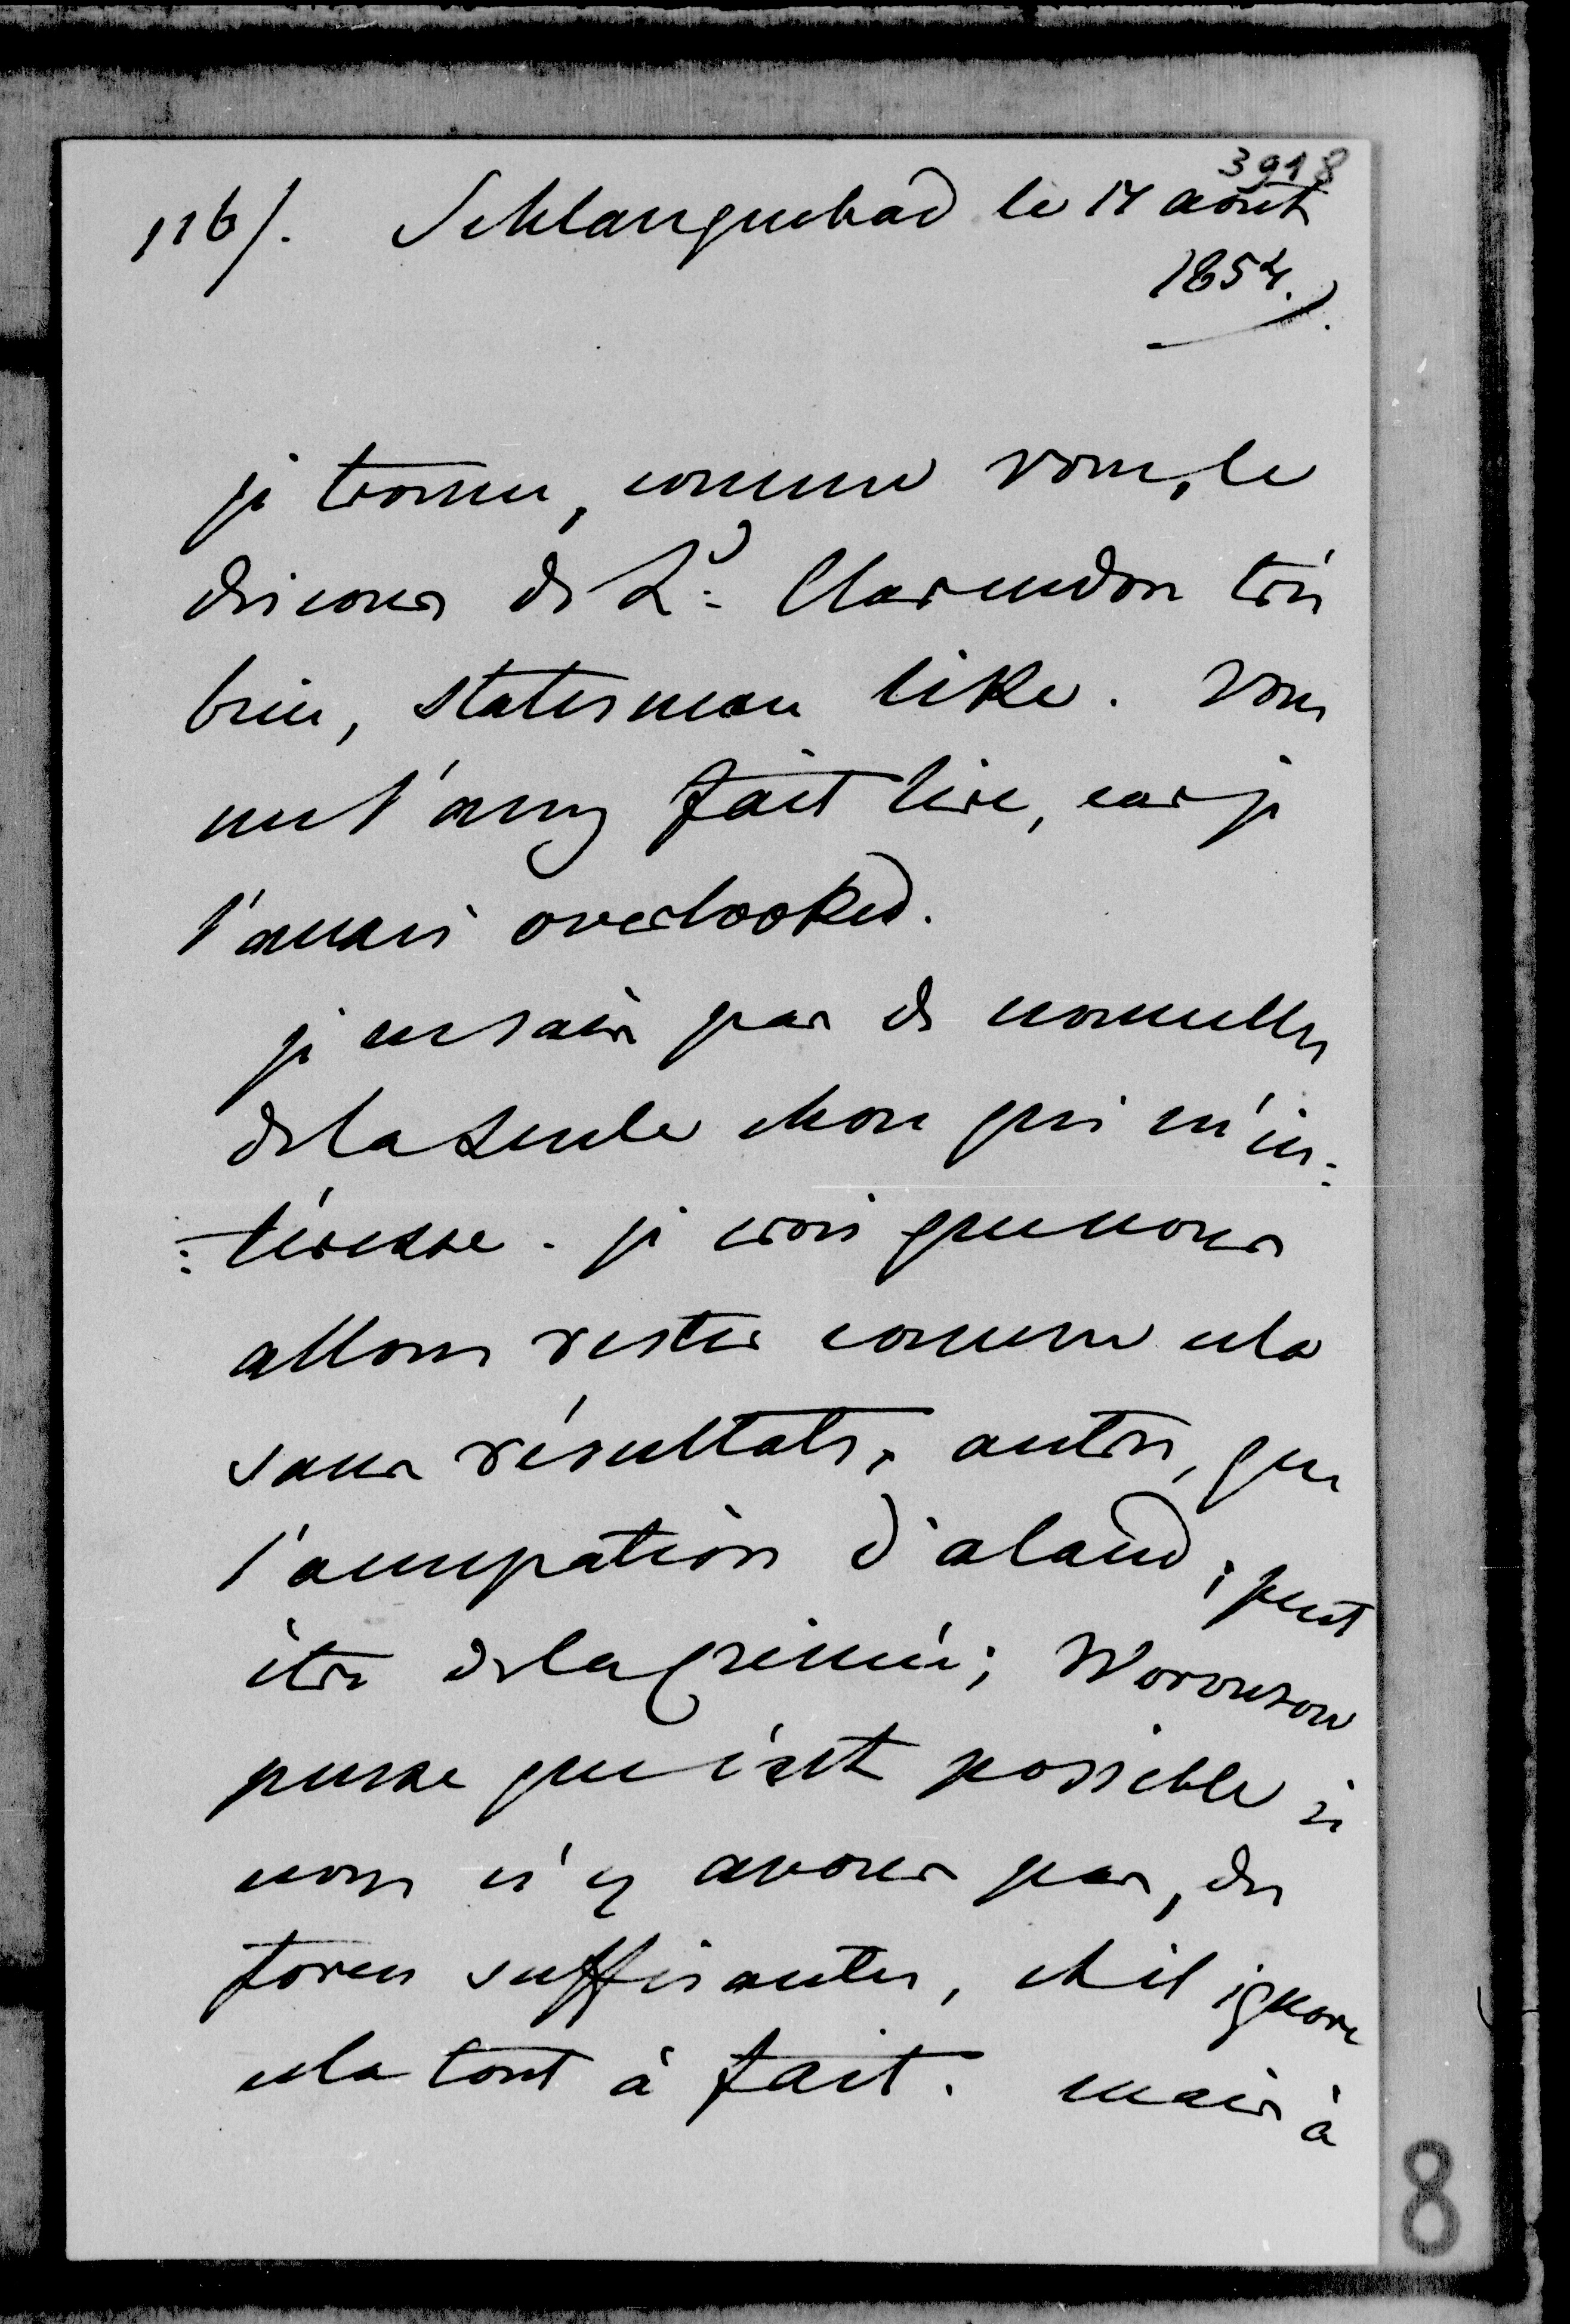 3918
116/. Schlanguebad le 14 août
1854.
je trouve, comme vous, le
discours de Ld Clarendon très
bien, statesman like. Vous
me l'avez fait lire, car je
l'avais overlooked.
je ne sais pas de nouvelles
de la seule chose qui m'in=
=téresse. je crois que nous
allons rester comme cela
sans résultats, autres, que
l'occupation d'aland, peut
être de la Crimée; Woronzow
pense que c'est possible si
nous n'y avons pas, des
forces suffisantes, et il ignore
cela tout à fait. mais à
8